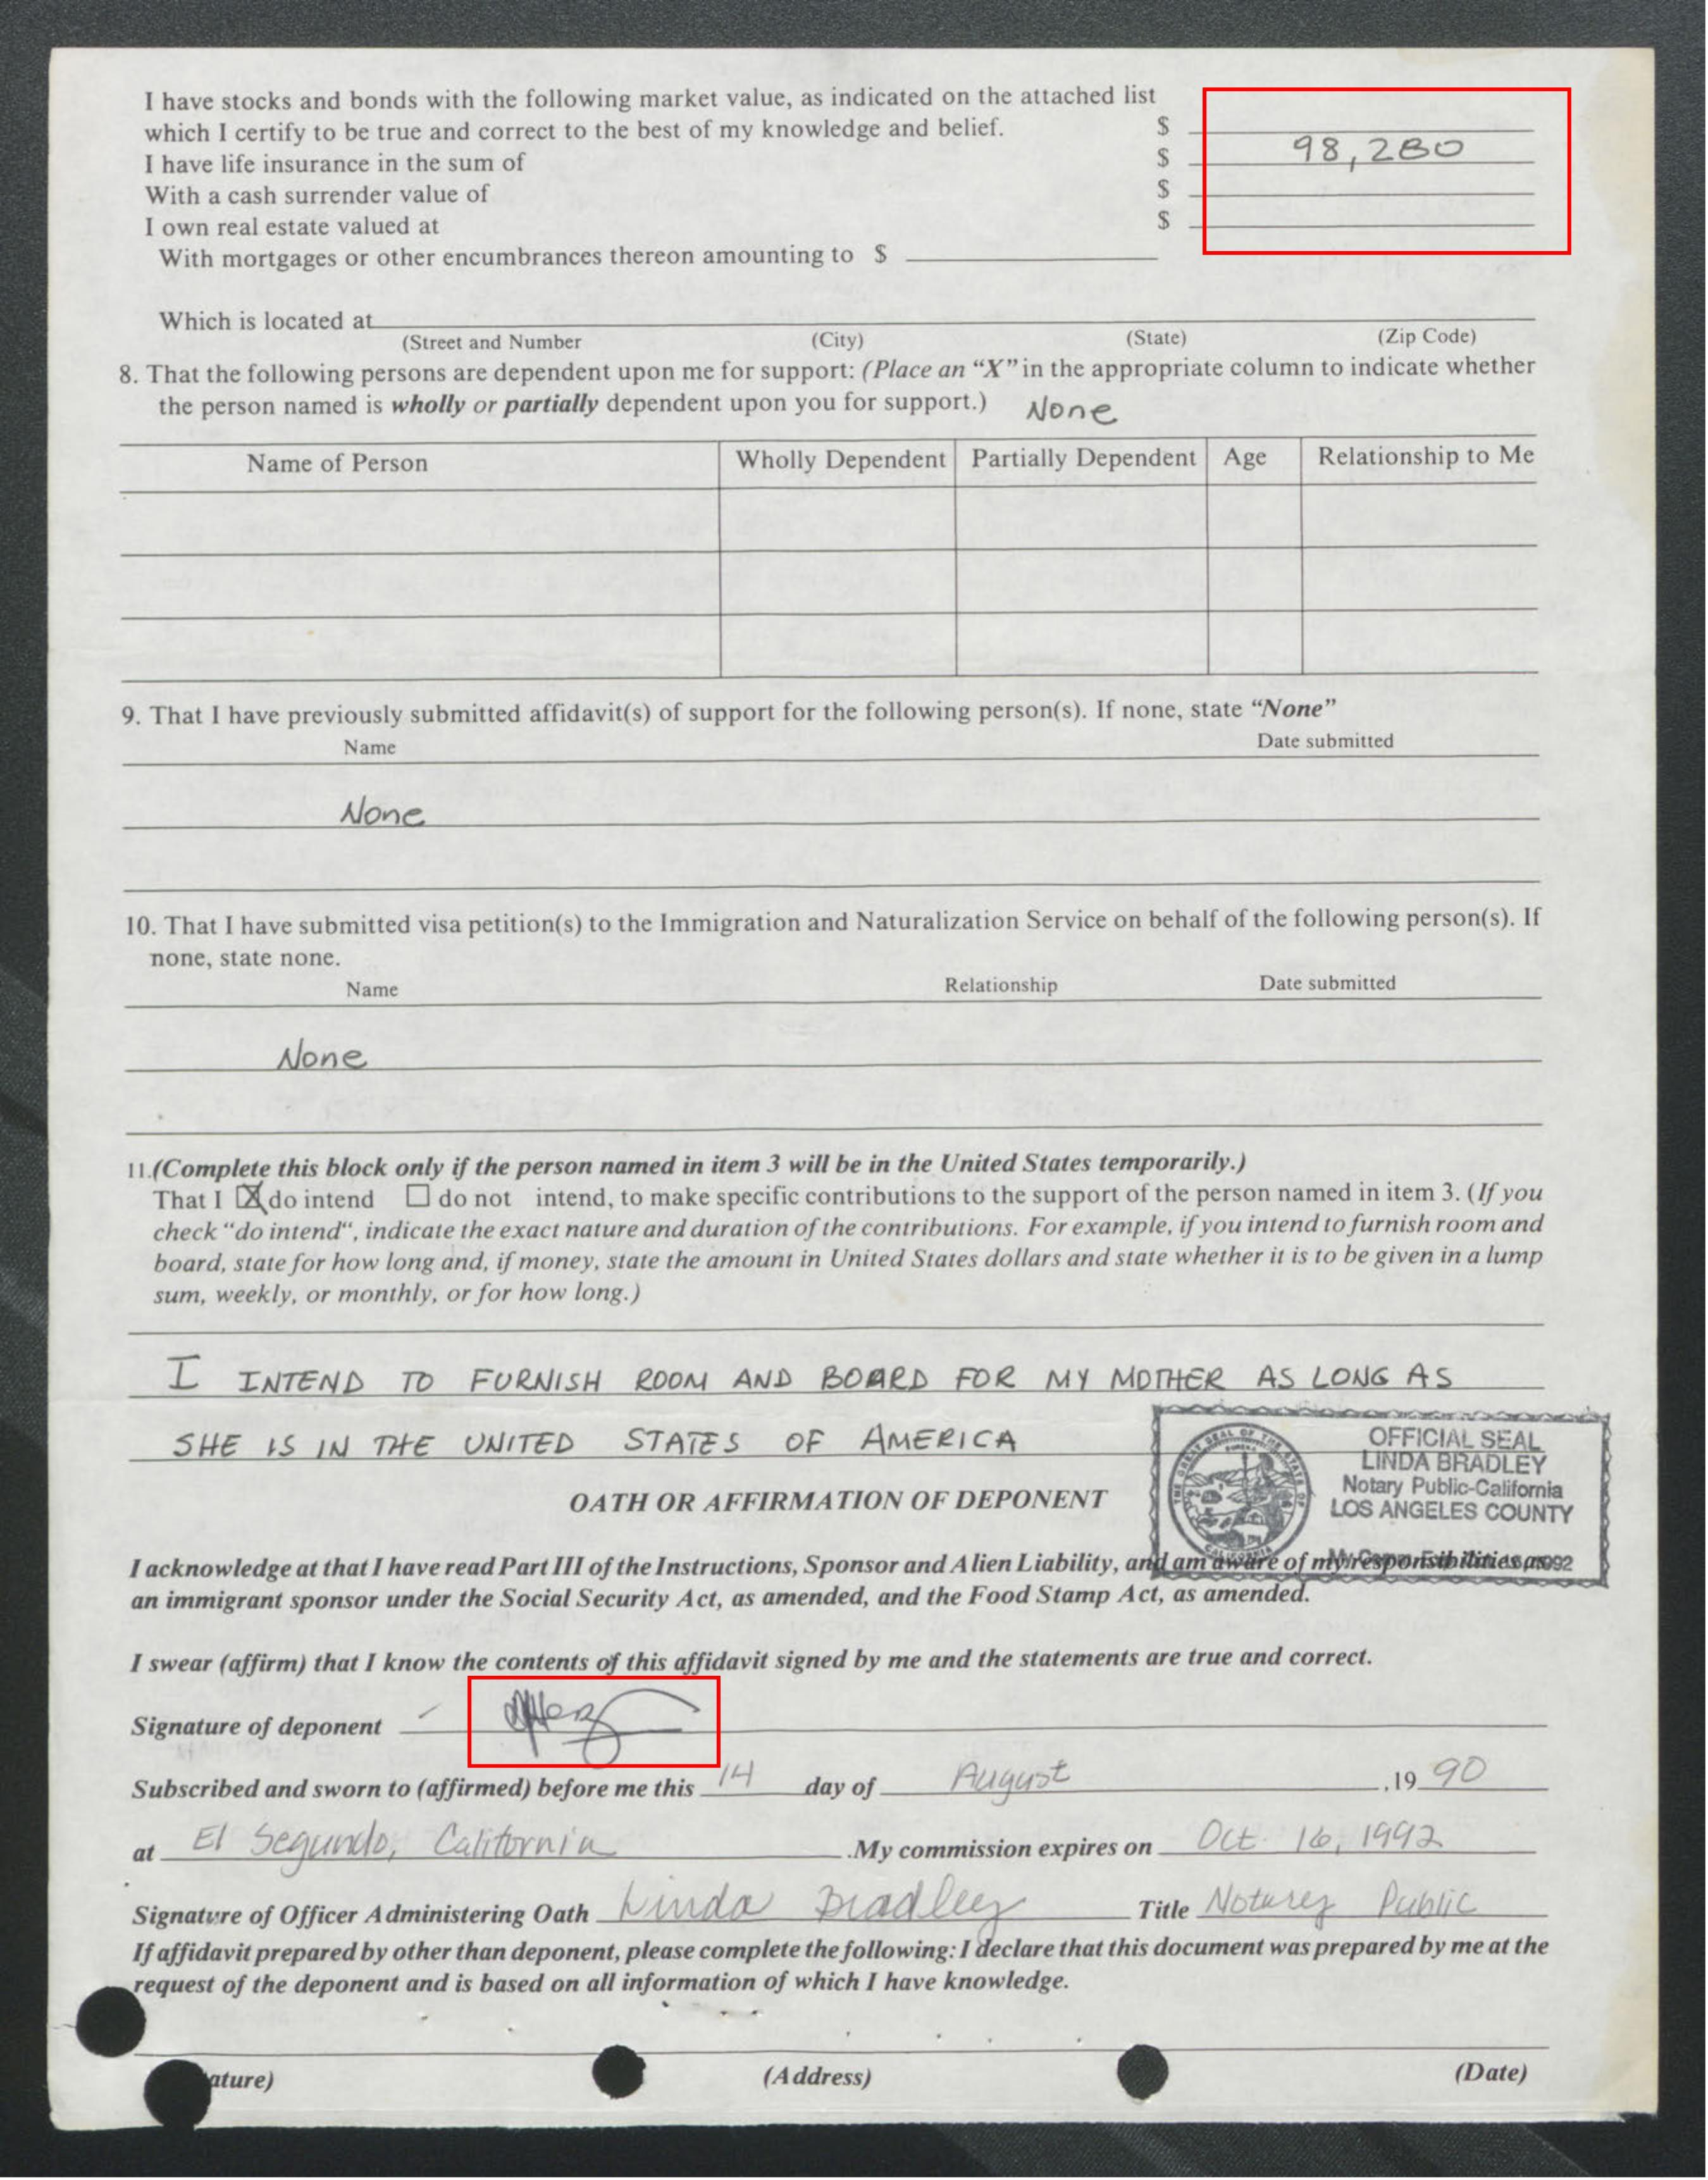 I have stocks and bonds with the following market value, as indicated on the attached list
which I certify to be true and correct to the best of my knowledge and belief. $
I have life insurance in the sum of $ 98,280
With a cash surrender value of $
I own real estate valued at $
With mortgages or other encumbrances thereon amounting to $
Which is located at
(Street and Number (City) (State) (Zip Code)
8. That the following persons are dependent upon me for support: (Place an “X” in the appropriate column to indicate whether
the person named is wholly or partially dependent upon you for support.) None
Name of Person Wholly Dependent Partially Dependent Age Relationship to Me
9. That I have previously submitted affidavit(s) of support for the following person(s). If none, state “None”
Name Date submitted
None
10. That I have submitted visa petition(s) to the Immigration and Naturalization Service on behalf of the following person(s). If
none, state none.
Name Relationship Date submitted
None
11.(Complete this block only if the person named in item 3 will be in the United States temporarily.)
That I ☒ do intend ☐ do not intend, to make specific contributions to the support of the person named in item 3. (If you
check “do intend“, indicate the exact nature and duration of the contributions. For example, if you intend to furnish room and
board, state for how long and, if money, state the amount in United States dollars and state whether it is to be given in a lump
sum, weekly, or monthly, or for how long.)
I INTEND TO FURNISH ROOM AND BOARD FOR MY MOTHER AS LONG AS
SHE IS IN THE UNITED STATES OF AMERICA
OFFICIAL SEAL
LINDA BRADLEY
Notary Public-California
LOS ANGELES COUNTY
OATH OR AFFIRMATION OF DEPONENT
I acknowledge at that I have read Part III of the Instructions, Sponsor and Alien Liability, and am aware of my responsibilities as
an immigrant sponsor under the Social Security Act, as amended, and the Food Stamp Act, as amended.
I swear (affirm) that I know the contents of this affidavit signed by me and the statements are true and correct.
Signature of deponent
Subscribed and sworn to (affirmed) before me this 14 day of August ,19 90
at El Segundo, California .My commission expires on Oct. 16, 1992
Signature of Officer Administering Oath Linda Bradley Title Notary Public
If affidavit prepared by other than deponent, please complete the following: I declare that this document was prepared by me at the
request of the deponent and is based on all information of which I have knowledge.
ature) (Address) (Date)